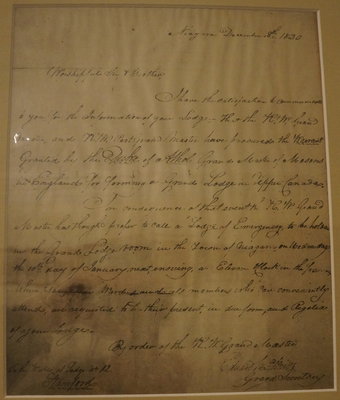 Niagara December 1820
Worshipful Sir & Brother
I have the satisfaction to communicate
to you for the Information of your Lodge - that the R. W. Grand
and R. W. Past Grand Master have renewed the Warrant
Granted by the Duke of Athol Grand Master of Masons
in England for forming a Grand Lodge in Upper Canada.
In consequence of that event the R. W. Grand
Master has thought proper to call a Lodge of Emergency to be holden
in the Grand Lodge Room in the Town of Niagara on Wednesday
the 10th day of January next ensuing, at Eleven Clock in the
When Wardens and members who can conveniently
attend are requested to be then present, in due form, and Regalia
of your Lodge.
By order of the R. W. Grand Master
Lodge No 12
Stamford
Grand Secretary